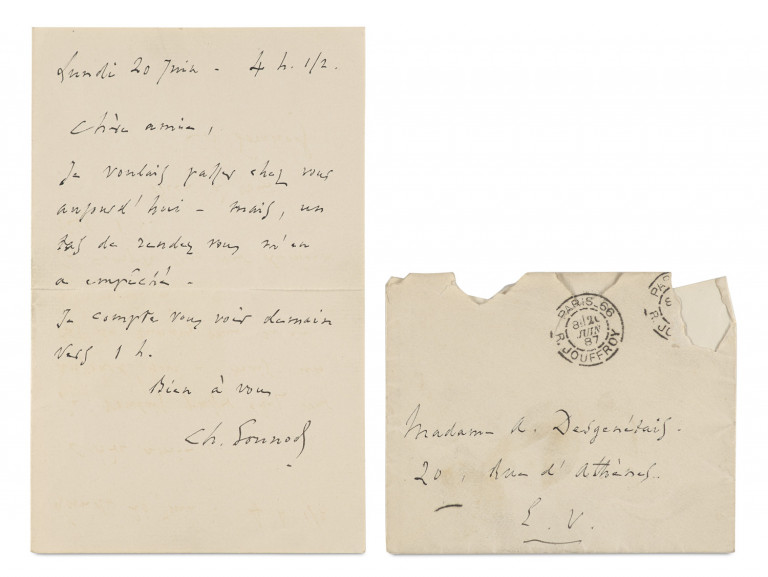 Lundi 20 Juin - 4 h. 1/2.
Chère amie,
Je voulais passer chez vous
aujourd'hui - mais, un
tas de rendez vous m'en
a empêché -
Je compte vous voir demain
vers 1 h.
Bien à vous
Ch. Gounod
PARIS_66
JUIN
87
R. JOUFFROY
PAR
R. JO
Madame A. Desgenétais.
20, Rue d'Athènes.
E. V.